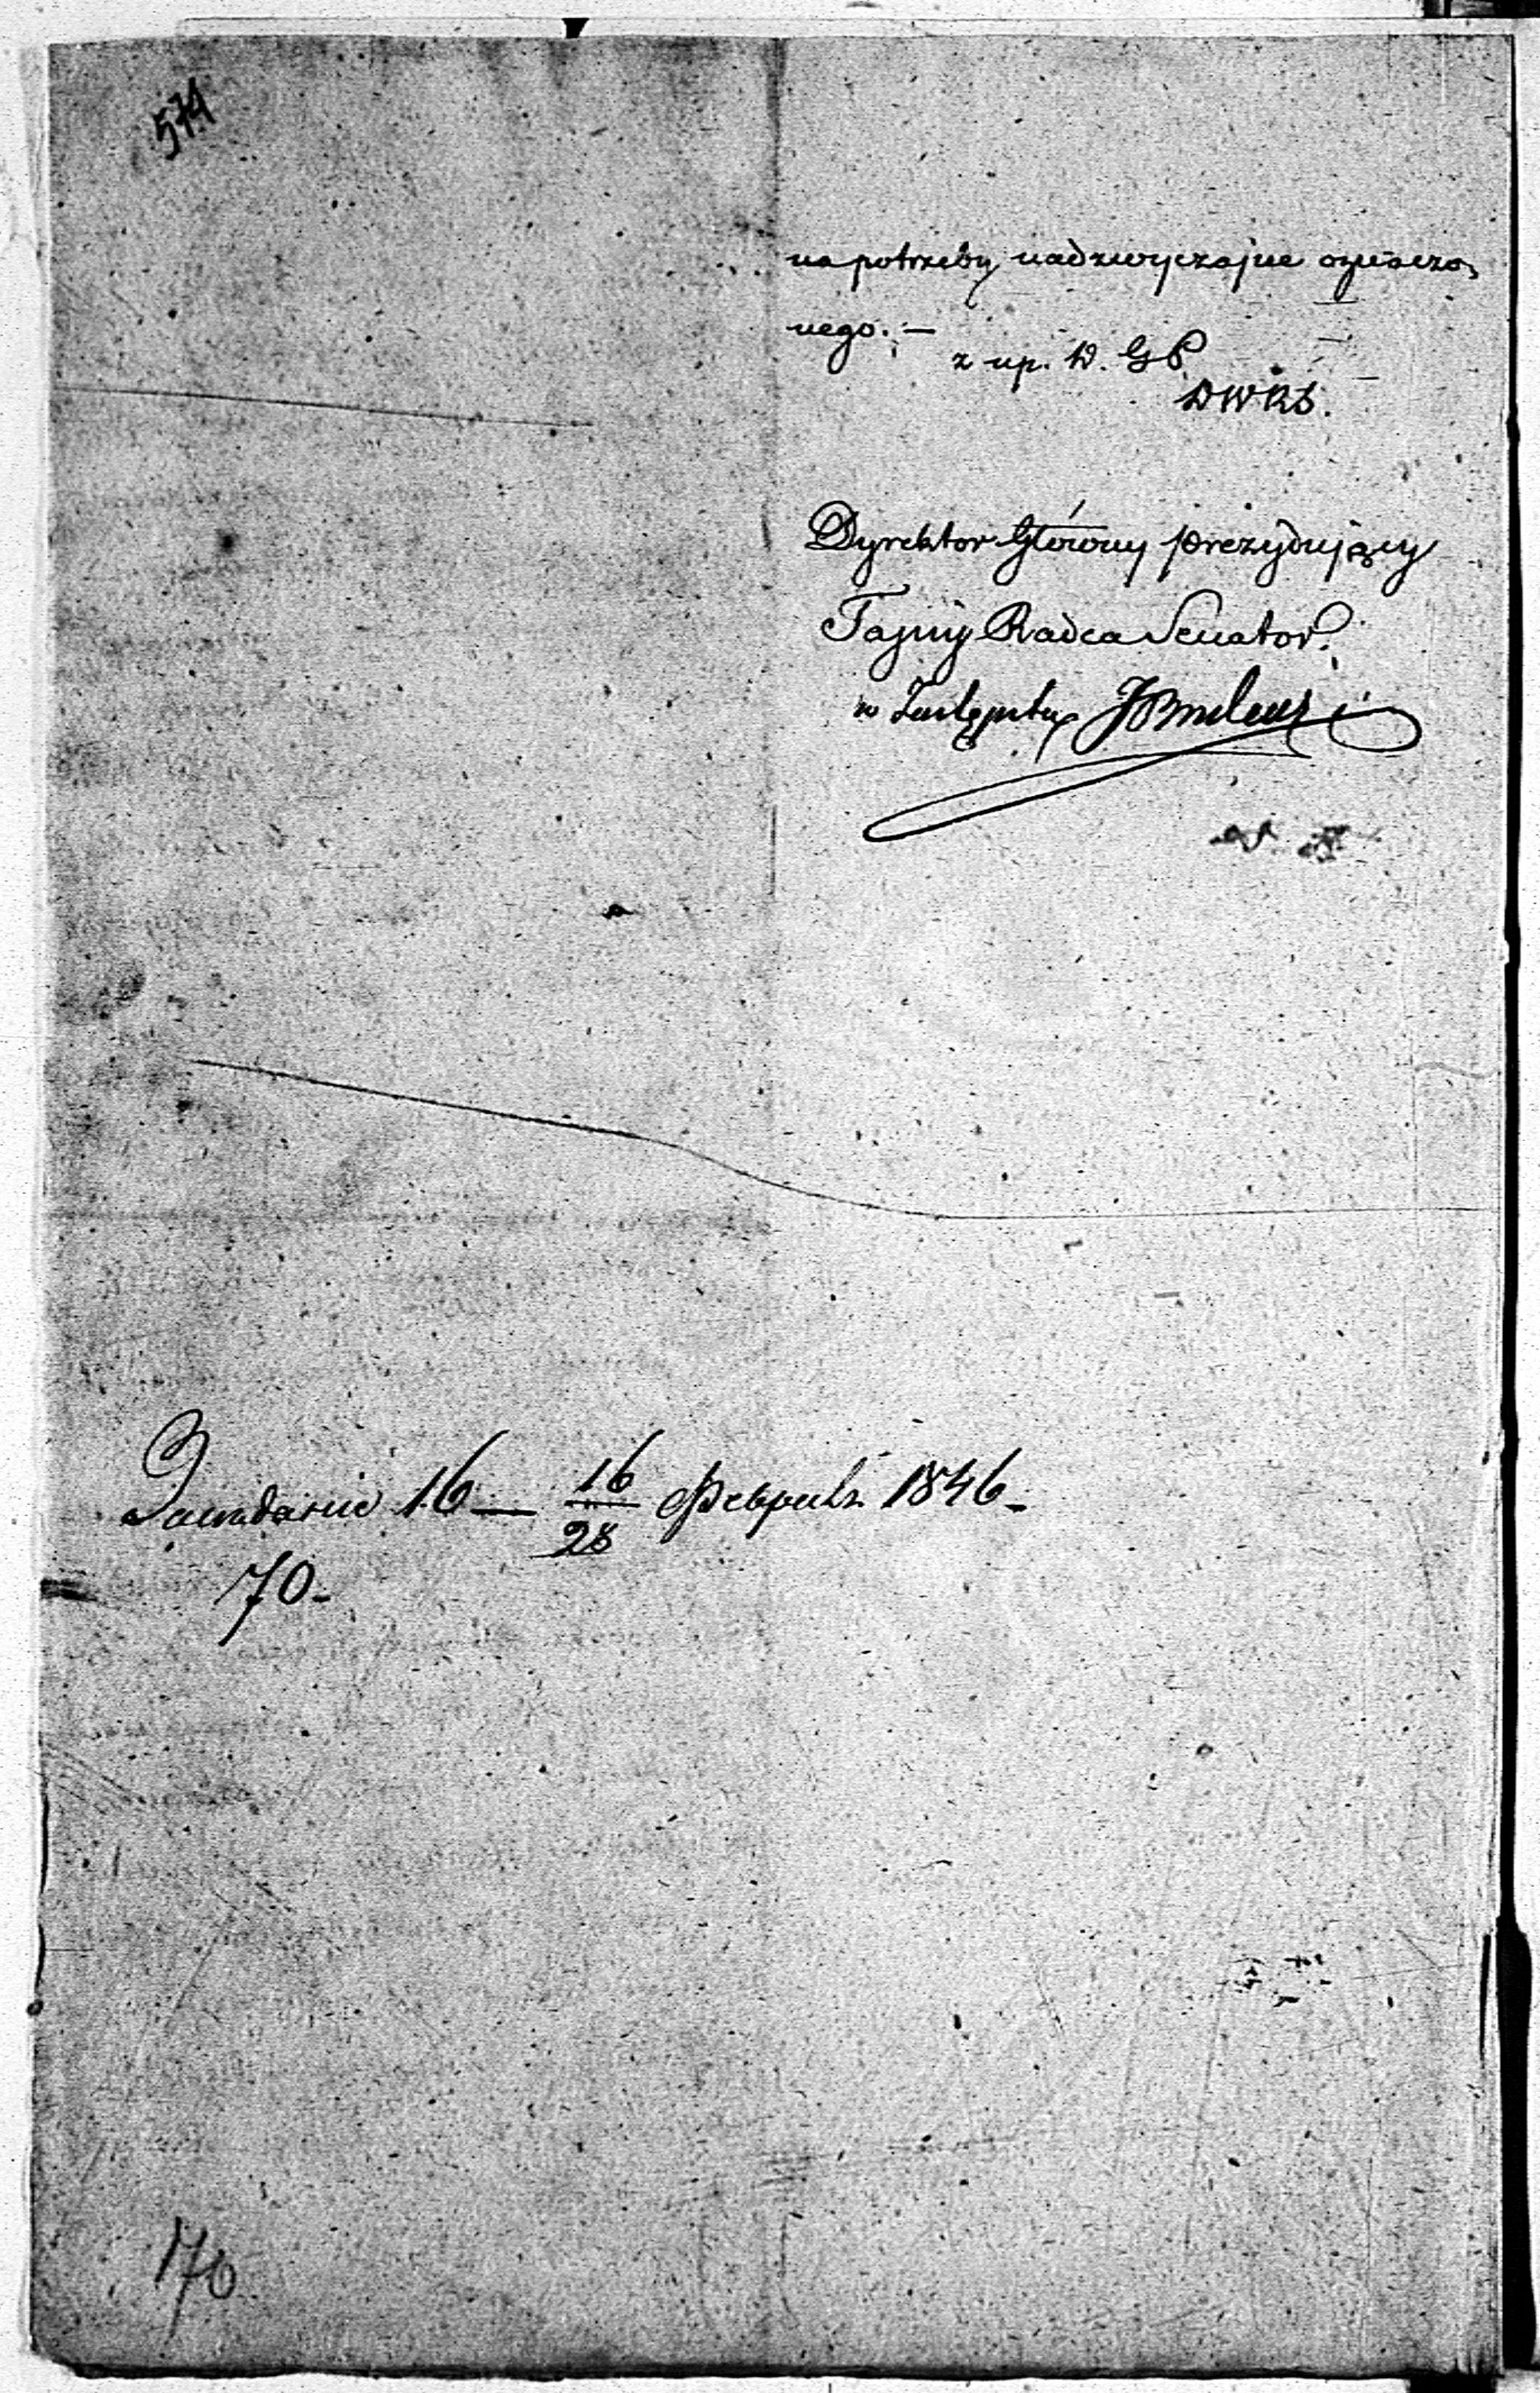 574
na potrzeby nadzwyczajne oznaczo-
nego. —
z up. D. G P.
DWRS.
Dyrektor Główny prezydujący
Tajny Radca Senator.
w Zastępstw
Засѣданіе 16 — 16/28 Февраля 1846 -
70 -
176